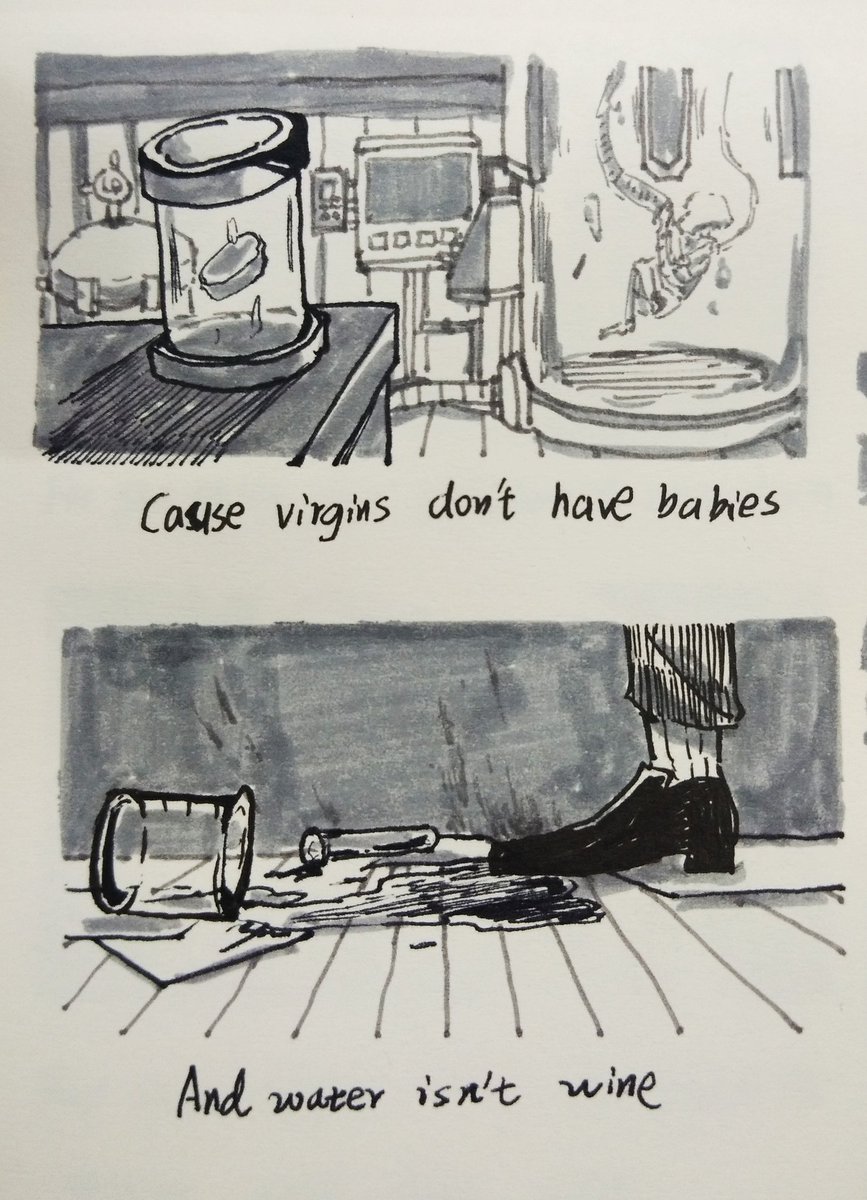 Cause virgins don't have babies
And water isn't wine